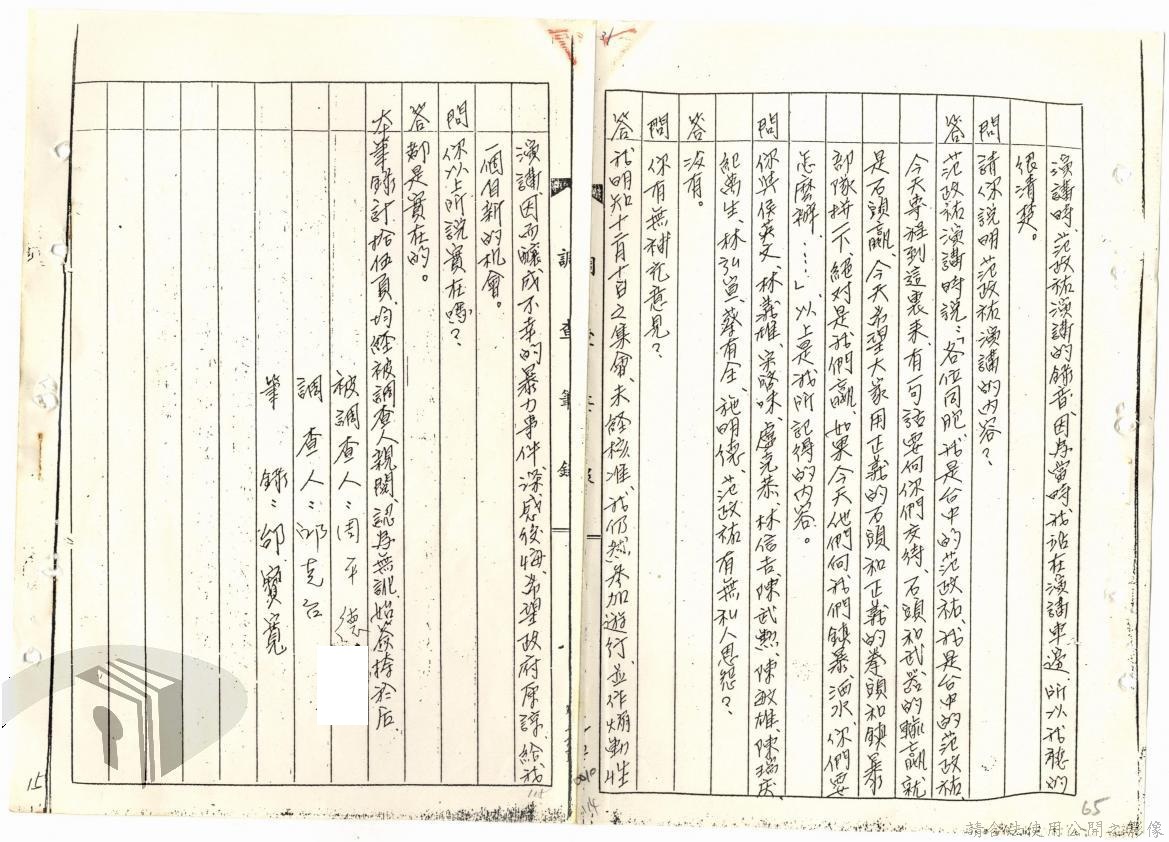 演講時、范政祐演講的錄音、因為當時我站在演講車邊、所以我聽的
很清楚。
問 請你說明范政祐演講的內容？
答 范政祐演講時說：「各位同胞我是台中的范政祐、我是台中的范政祐、
今天專程到這裏來、有一句話要向你們交待、石頭和武器的輸贏就
是石頭贏、今天希望大家用正義的石頭和正義的拳頭和鎮暴
部隊拼一下、絕對是我們贏、如果今天他們向我們鎮暴洒水、你們要
怎麼辦……」以上是我所記得的內容。
問 你與侯爽文、林義雄、宋 盧克恭、林信吉、陳武勲、陳敏雄、陳瑞慶、
紀萬生、林弘宣、蔡有全、施明德、范政祐有無私人恩怨？
答 沒有。
問 你有無補充意見？
答 我明知十二月十日之集會、未經核准、我仍然參加遊行、並作煽動性
演講、因而釀成不幸的暴力事件、深感後悔、希望政府原諒、給我
一個自新的机會。
問 你以上所說實在嗎？
答 都是實在的。
本筆錄計拾伍頁、均經被調查人親閱、認為無訛始簽捺於后
被調查人：周平德
調查人：邱克台
筆錄：邰寶寬
調查筆錄
15
114
65
請合法使用公開之影像